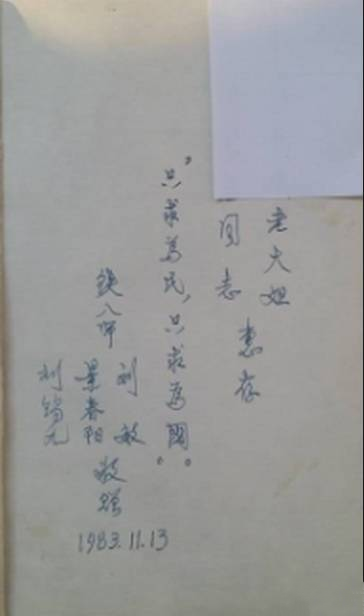 老大姐
同志 惠存
“只求為民，只求為國”。
铁八师
刘敏
景春阳
刘
敬赠
1983.11.13